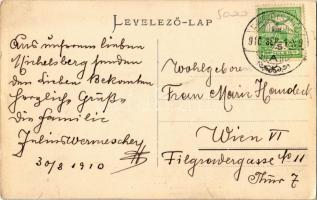 5000
LEVELEZŐ-LAP
Aus unserem lieben
Michelsberg senden
den lieben Bekannten
herzlichste Grüße
die Familie
Julius Wermescher
30/8 1910
Wohlgeboren
Frau Marie
Wien VI
Filgradergasse No 11
Thür 7